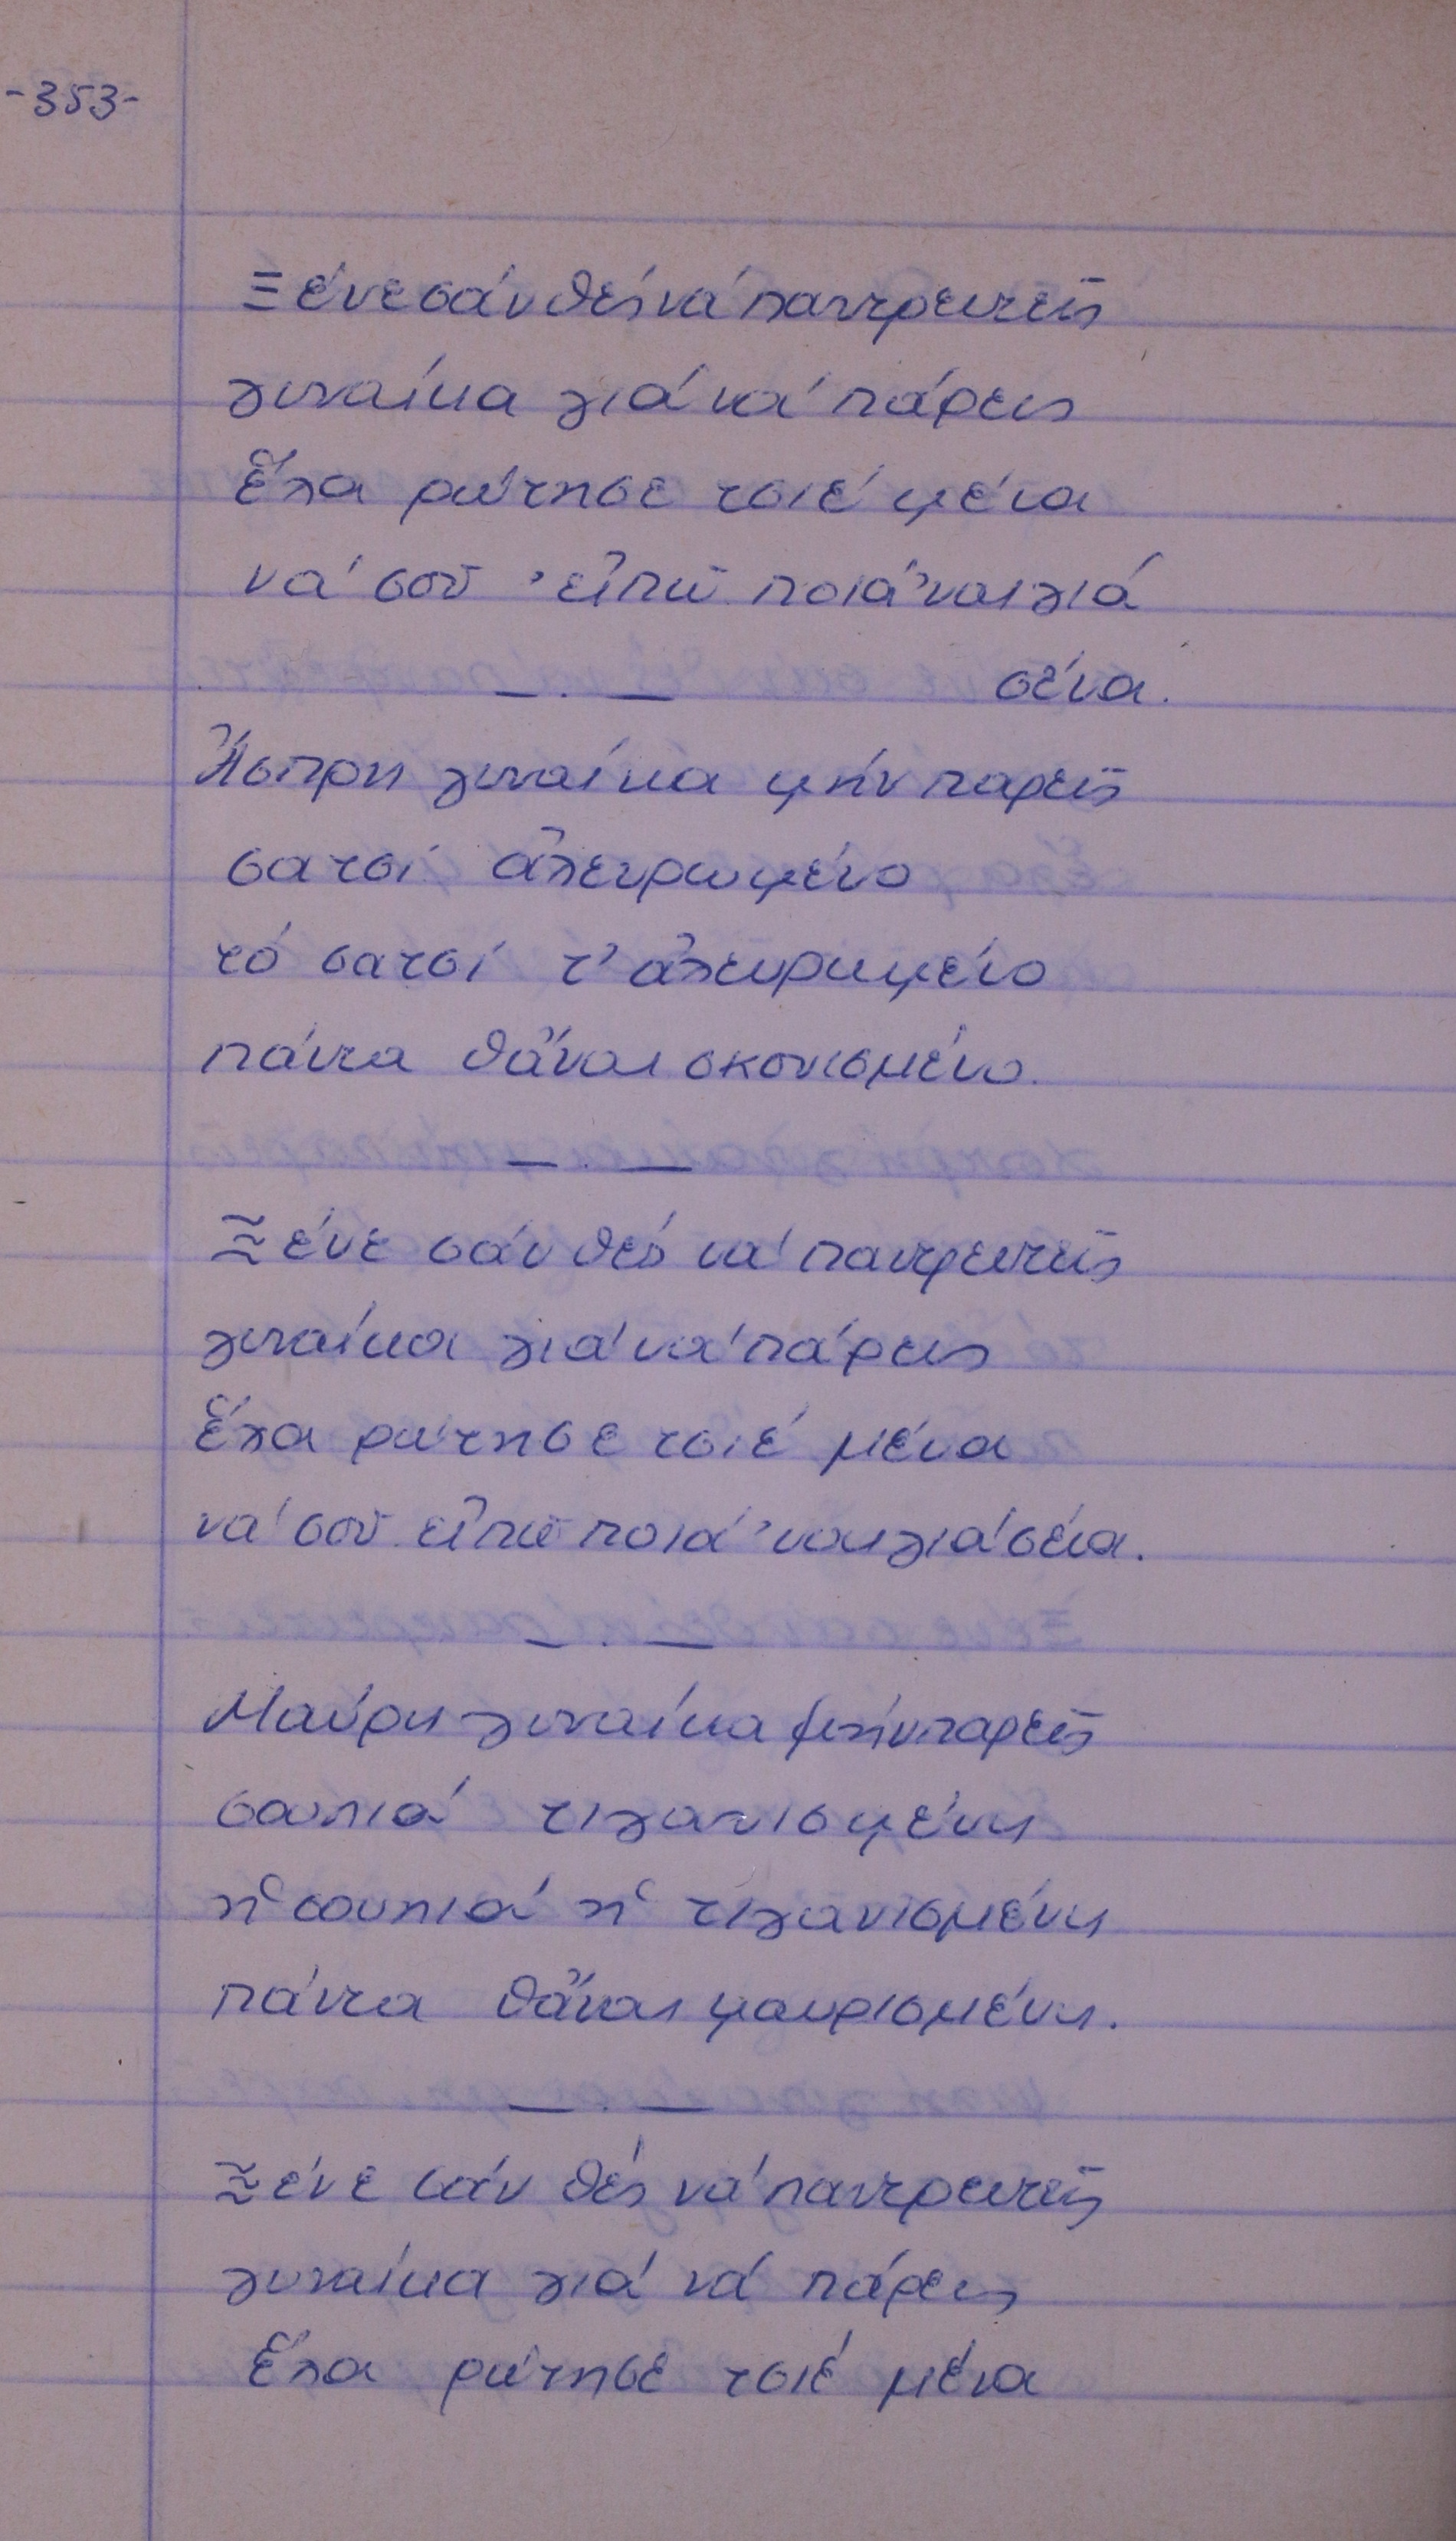 -353-
Ξένε σάν θές νά παντρευτεῖς
γυναίκα γιά νά πάρεις
Ἔλα ρώτησε τσιέ μένα
νά σοῦ 'εἰπῶ ποιά 'ναι γιά
σένα.
Ἄσπρη γυναίκα μήν παρεῖς
σατσί ἀλευρωμένο
τό σατσί τ' ἀλευρωμένο
πάντα θἄναι σκονισμένο.
Ξένε σάν θές νά παντρευτεῖς
γυναίκα γιά νά πάρεις
Ἔλα ρώτησε τσιέ μένα
νά σοῦ εἰπῶ ποιά 'ναι γιά σένα.
Μαύρη γυναίκα μήν παρεῖς
σουπιά τιγανισμένη
ἡ σουπιά ἡ τιγανισμένη
πάντα θἄναι μαυρισμένη.
Ξένε σάν θές νά παντρευτεῖς
γυναίκα γιά νά πάρεις
Ἔλα ρώτησέ τσιέ μένα